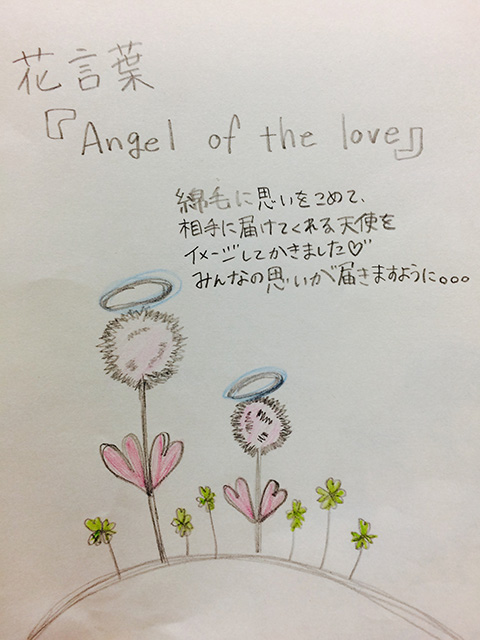 花言葉
『Angel of the love』
綿毛に思いをこめて、
相手に届けてくれる天使を
イメージしてかきました♡
みんなの思いが届きますように。。。